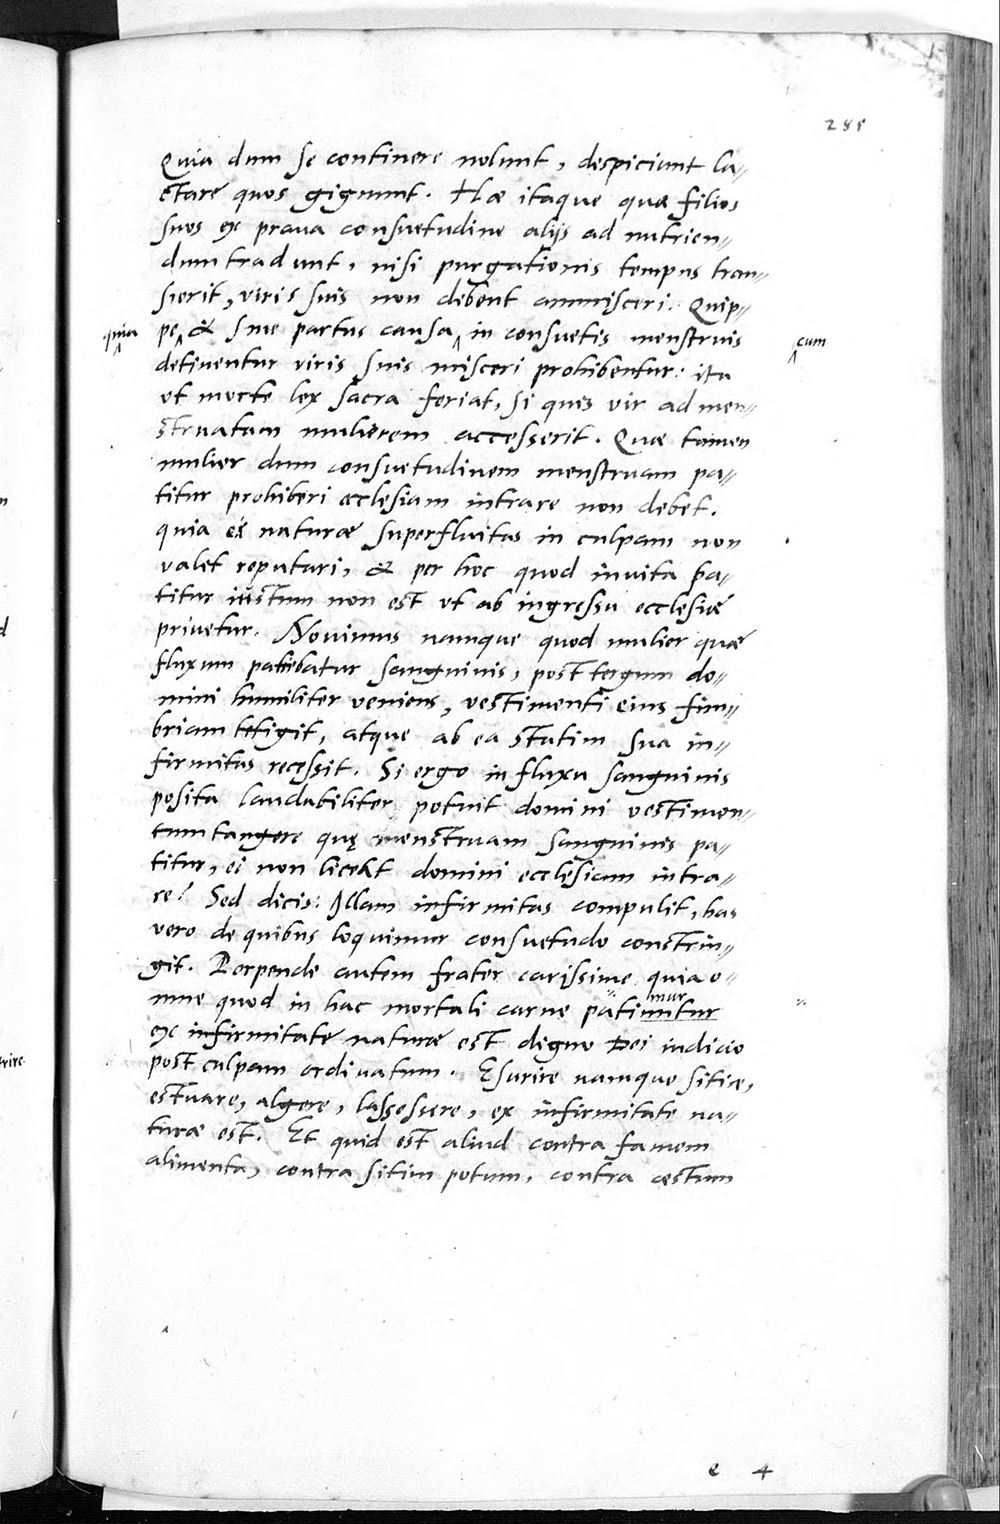 285
Quia dum se continere nolunt, despiciunt la„
ctare quos gignunt. Hae itaque quae filios
suos ex praua consuetudine alijs ad nutrien„
dum tradunt, nisi purgationis tempus tran„
sierit, viris suis non debent ammisceri. Quip„
quia pe ‸ & sine partus causa ‸ in consuetis menstruis cum
detinentur viris suis misceri prohibentur: ita
ut morte lex sacra feriat, si quis vir ad men„
struatam mulierem accesserit. Quae tamen
mulier dum consuetudinem menstruam pa„
titur prohiberi ecclesiam intrare non debet.
quia ei naturae superfluitas in culpam non
valet reputari, & per hoc quod inuita pa„
titur iustum non est ut ab ingressu ecclesiae
priuetur. Nouimus namque quod mulier quae
fluxum patiebatur sanguinis, post tergum do„
mini humiliter veniens, vestimenti eius fim„
briam tetigit, atque ab ea statim sua in„
firmitas recessit. Si ergo in fluxu sanguinis
posita laudabiliter potuit domini vestimen„
tum tangere quę menstruam sanguinis pa„
titur, ei non liceat domini ecclesiam intra„
re? Sed dicis: Illam infirmitas compulit, has
vero de quibus loquimur consuetudo constrin„
git. Perpende autem frater carissime quia o„
mur
mne quod in hac mortali carne patimitur
ex infirmitate naturae est digno Dei iudicio
post culpam ordinatum. Esurire namque sitire,
estuare, algere, lassescere, ex infirmitate na„
turae est. Et quid est aliud contra famem
alimenta, contra sitim potum, contra aestum
e 4